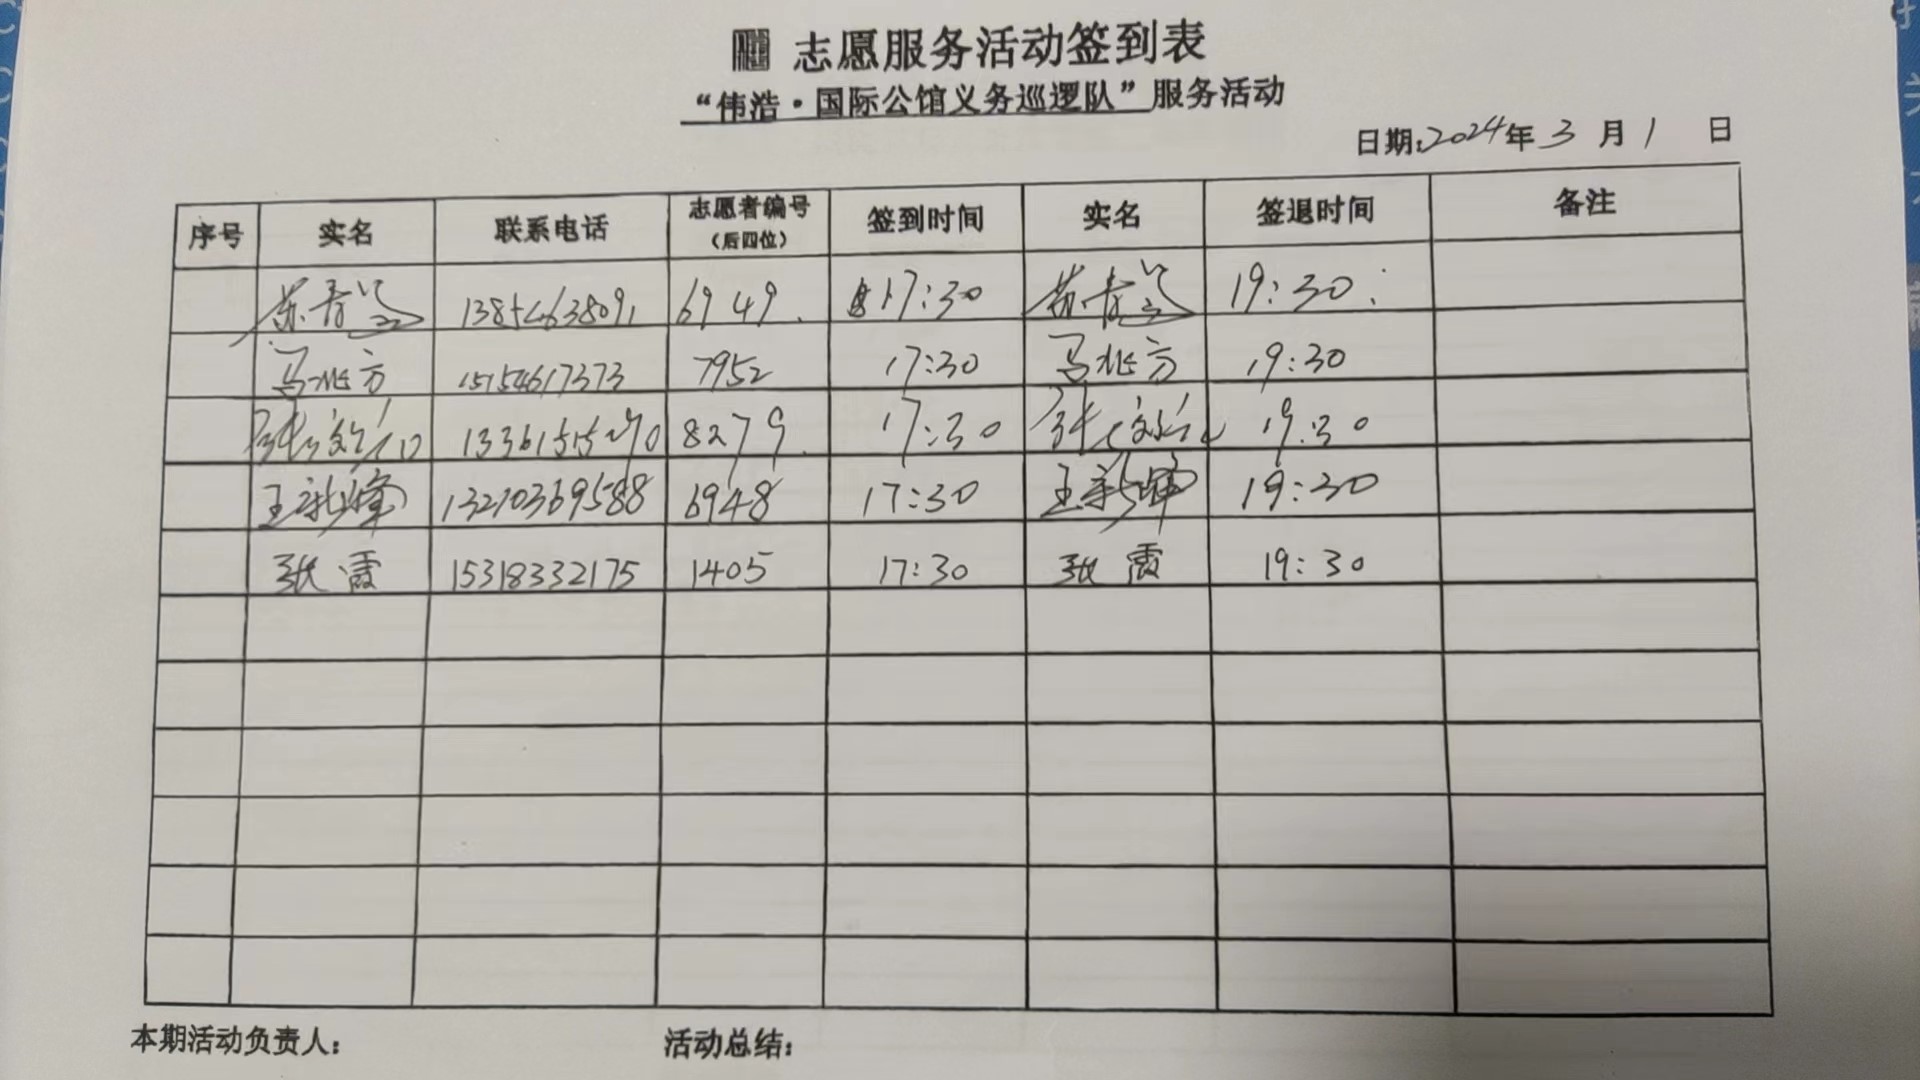 志愿服务活动签到表
“伟浩·国际公馆义务巡逻队”服务活动
日期:2024年3月1日
序号 实名 联系电话 志愿者编号(后四位) 签到时间 实名 签退时间 备注
苏青兰 13854638091 6949 17:30 苏青兰 19:30
马兆方 15154617373 7952 17:30 马兆方 19:30
张 8279 17:30 张 19:30
王新峰 13210369588 6948 17:30 王新峰 19:30
张霞 15318332175 1405 17:30 张霞 19:30
本期活动负责人: 活动总结: